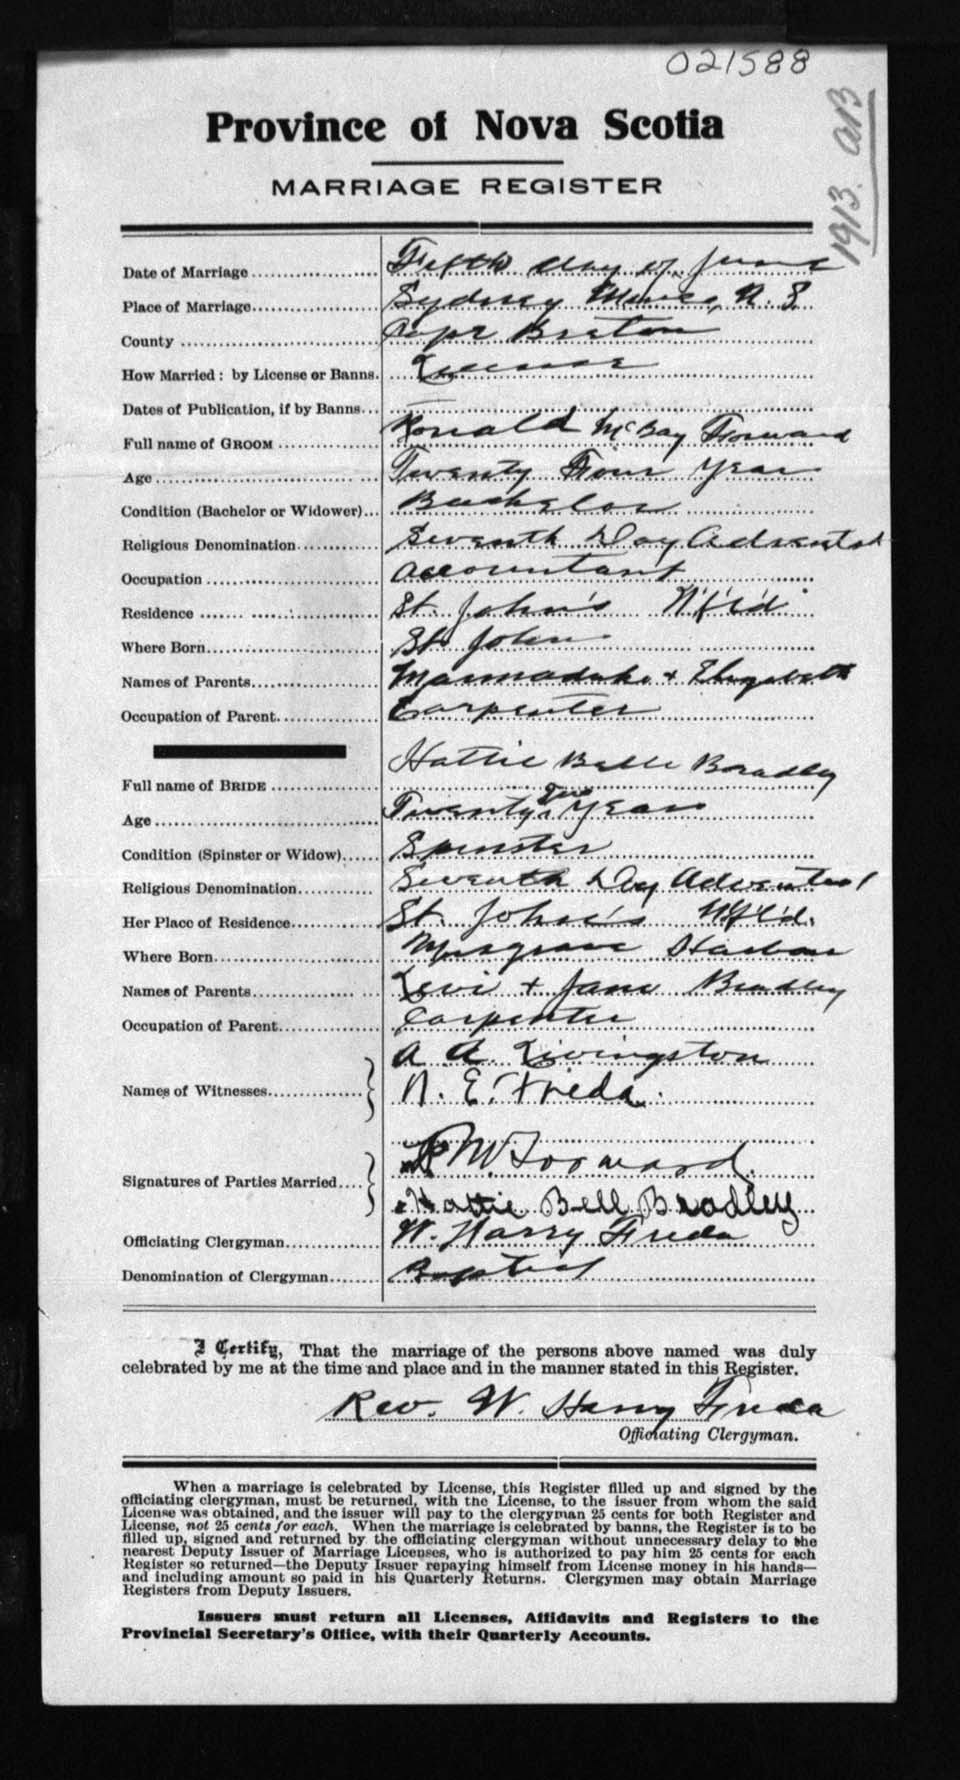 021588
1913. AB
Province of Nova Scotia
MARRIAGE REGISTER
Date of Marriage Fifth day of June
Place of Marriage Sydney Mines, N. S.
County Cape Breton
How Married: by License or Banns. License
Dates of Publication, if by Banns
Full name of GROOM Ronald McKay Forward
Age Twenty Four Year
Condition (Bachelor or Widower) Bachelor
Religious Denomination Seventh Day Adventist
Occupation Accountant
Residence St. John's N'f'l'd
Where Born St John
Names of Parents Marmaduke + Elizabeth
Occupation of Parent Carpenter
Full name of BRIDE Hattie Belle Bradley
Age Twenty Two Years
Condition (Spinster or Widow) Spinster
Religious Denomination Seventh Day Adventist
Her Place of Residence St. John's N'f'l'd.
Where Born Musgrave Harbour
Names of Parents Levi + Jane Bradley
Occupation of Parent Carpenter
A. A. Livingston
Names of Witnesses N. E. Freda.
R M. Forward.
Signatures of Parties Married
Hattie Bell Bradley
Officiating Clergyman W. Harry Freda
Denomination of Clergyman Baptist
I Certify, That the marriage of the persons above named was duly
celebrated by me at the time and place and in the manner stated in this Register.
Rev. W. Harry Freda
Officiating Clergyman.
When a marriage is celebrated by License, this Register filled up and signed by the
officiating clergyman, must be returned, with the License, to the issuer from whom the said
License was obtained, and the issuer will pay to the clergyman 25 cents for both Register and
License, not 25 cents for each. When the marriage is celebrated by banns, the Register is to be
filled up, signed and returned by the officiating clergyman without unnecessary delay to the
nearest Deputy Issuer of Marriage Licenses, who is authorized to pay him 25 cents for each
Register so returned—the Deputy Issuer repaying himself from License money in his hands—
and including amount so paid in his Quarterly Returns. Clergymen may obtain Marriage
Registers from Deputy Issuers.
Issuers must return all Licenses, Affidavits and Registers to the
Provincial Secretary's Office, with their Quarterly Accounts.